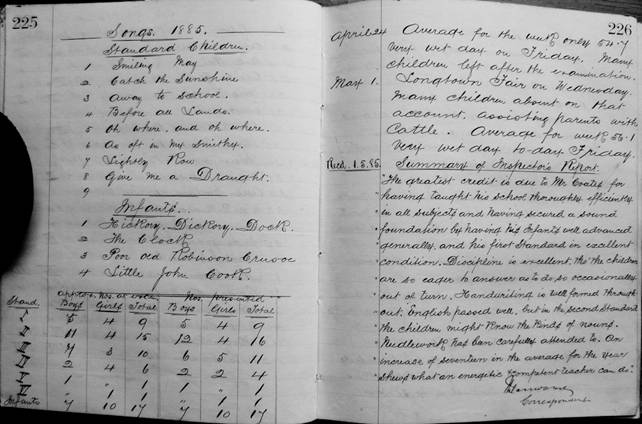 225
Songs. 1885.
Standard Children.
1 Smiling May
2 Catch the Sunshine
3 Away to School.
4 Before all Lands.
5 Oh where, and oh where.
6 As oft in my Smithy.
7 Lightly Row
8 Give me a Draught.
9
Infants.
1 Hickory. Dickory. Dock.
2 The Clock
3 Poor old Robinson Crusoe
4 Little John Cook.
Stand. Boys Girls Total Boys Girls Total
5 4 9 5 4 9
11 4 15 12 4 16
7 3 10 6 5 11
2 4 6 2 2 4
1 " 1 1 " 1
1 " 1 1 " 1
Infants 7 10 17 7 10 17
226
April 24 Average for the week only 54.7
Very wet day on Friday. Many
children left after the examination.
May 1. Longtown Fair on Wednesday.
Many children absent on that
account, assisting parents with
Cattle. Average for week 55.1
Very wet day to-day Friday.
Recd. 1.5.85. Summary of Inspector's Report.
"The greatest credit is due to Mr Coates for
"having taught his school thoroughly efficiently
"in all subjects and having secured a sound
"foundation by having his Infants well advanced
"generally, and his first Standard in excellent
"condition. Discipline is excellent, tho' the children
"are so eager to answer as to do so occasionally
"out of turn. Handwriting is well formed through-
"out. English passed well, but in the second Standard
"the children might know the kinds of nouns.
"Needlework has been carefully attended to. An
"increase of seventeen in the average for the year
"shews what an energetic & competent teacher can do."
Correspondent